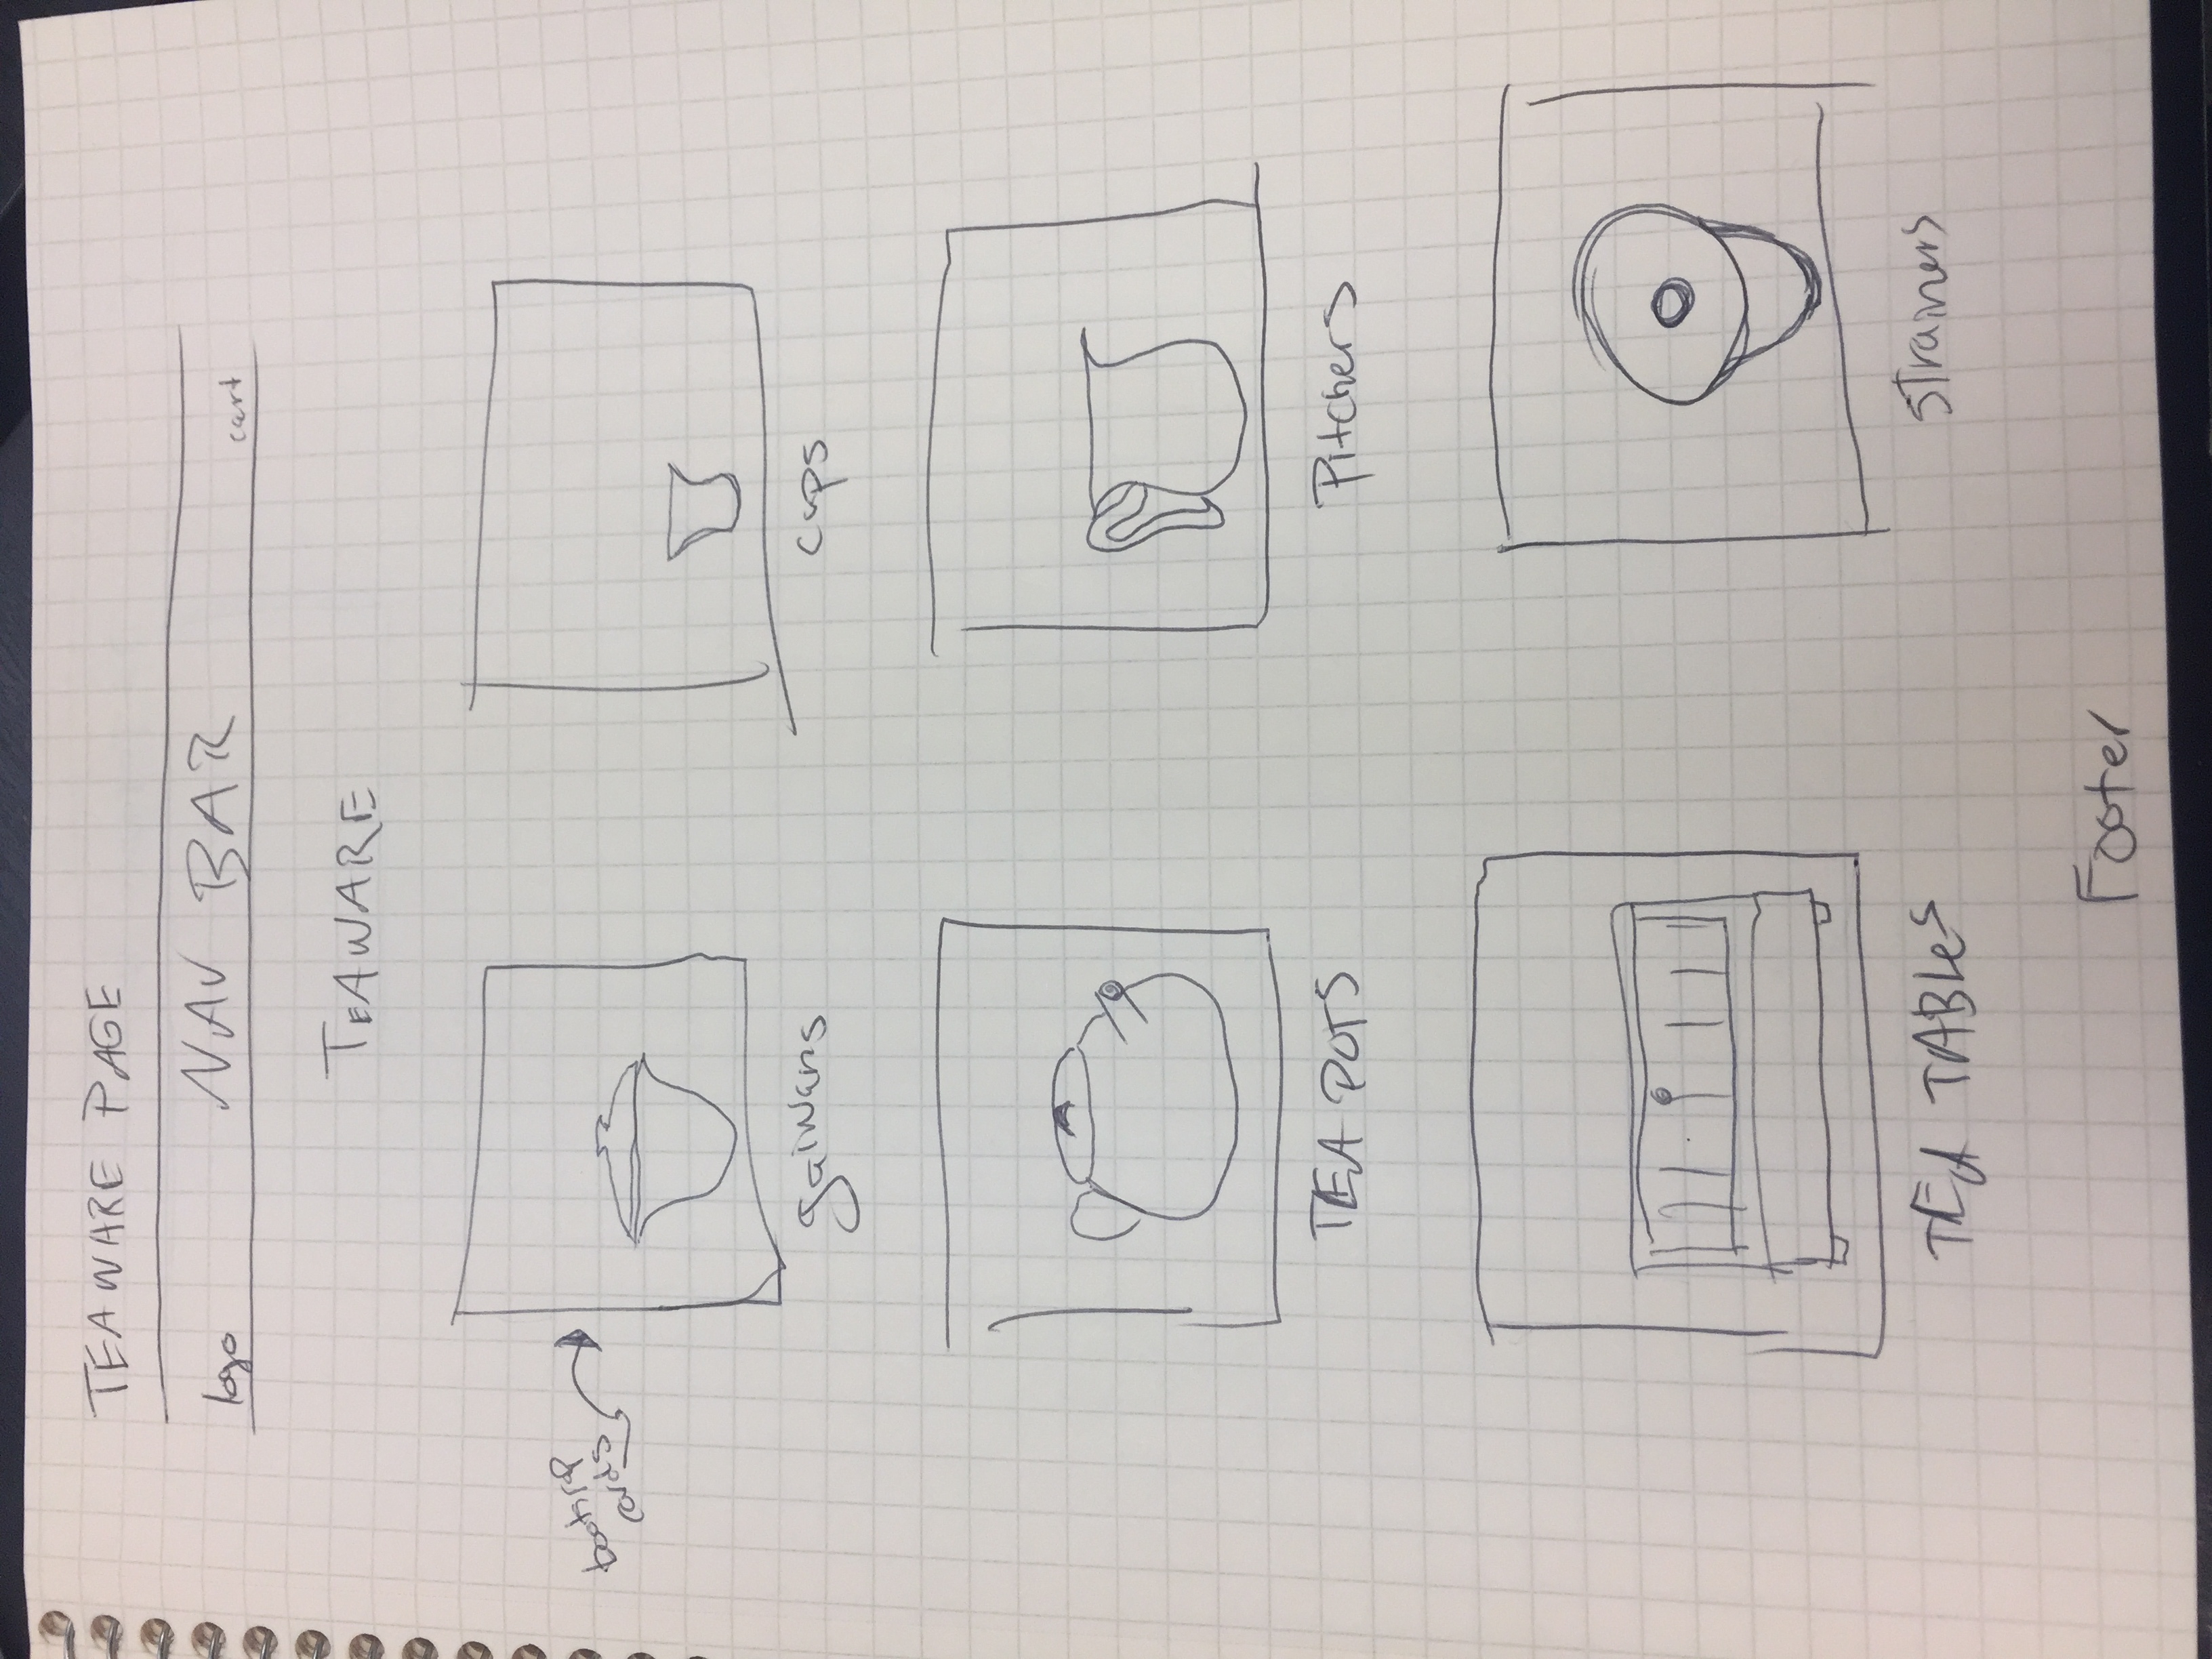 TEAWARE PAGE
logo NAV BAR cart
TEAWARE
bootsrap
cards
gaiwans cups
TEA POTS Pitchers
TEA TABLes sTrainers
Footer